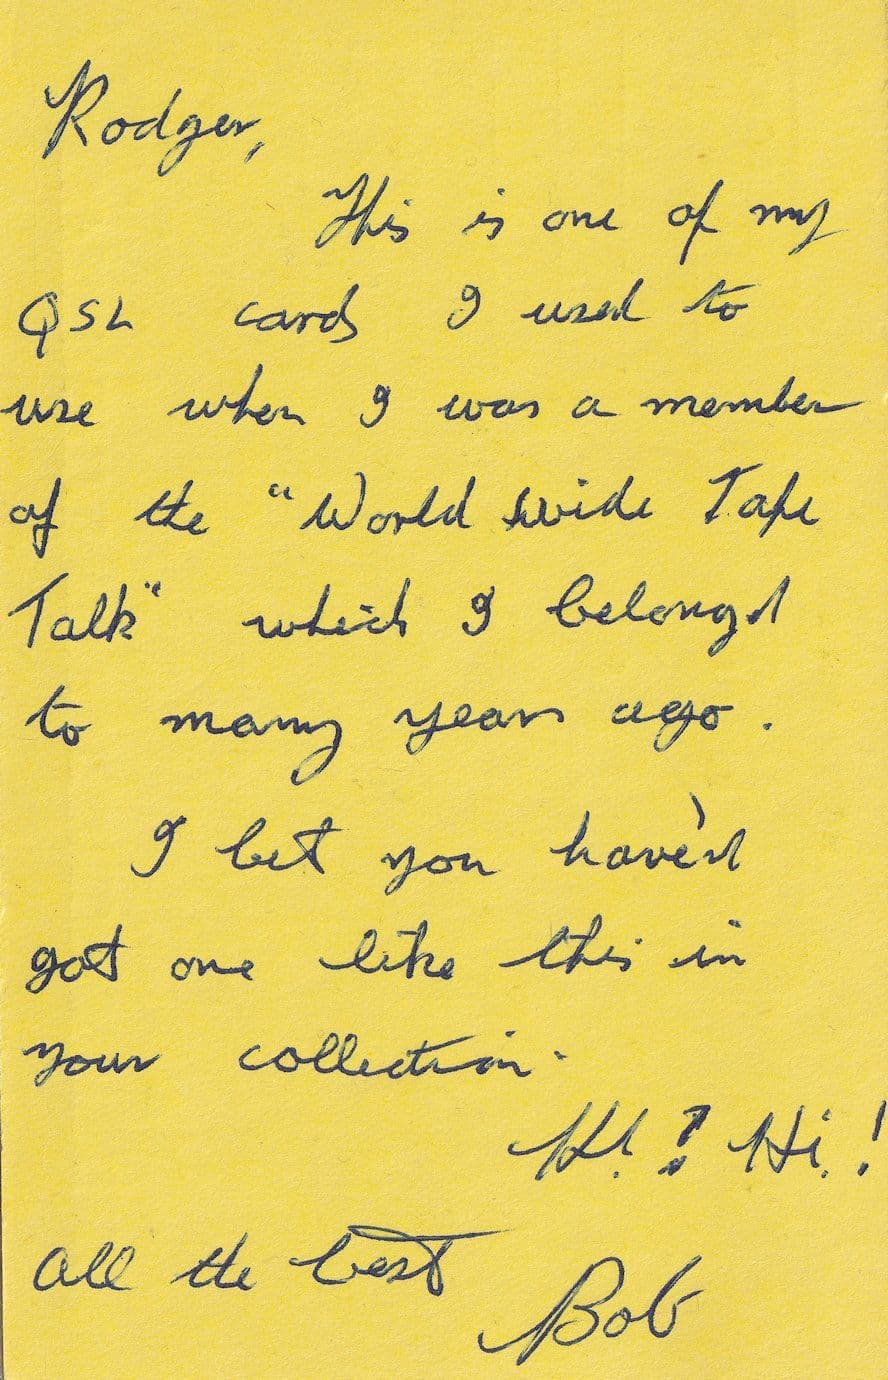 Rodger,
This is one of my
QSL cards I used to
use when I was a member
of the "World wide Tape
Talk" which I belongd
to many years ago.
I bet you have'nt
got one like this in
your collection.
Hi! ? Hi!
All the best
Bob